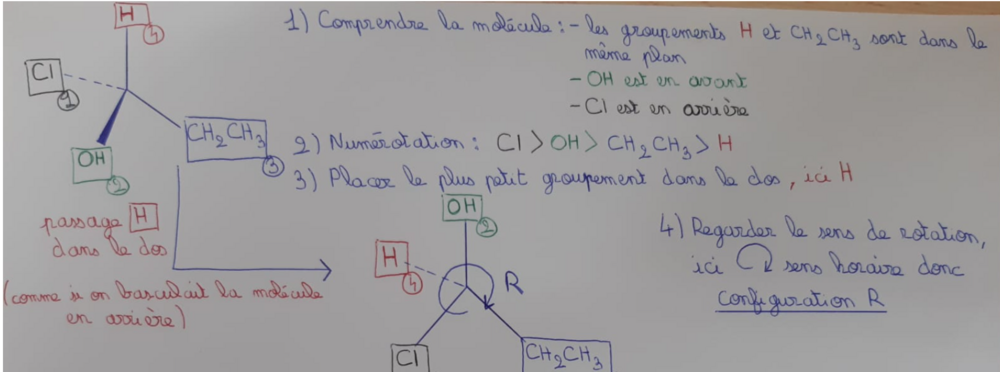 H
4
Cl
1
OH
2
CH2CH3
3
passage H
dans le dos
(comme si on basculait la molécule
en arrière)
1) Comprendre la molécule : - les groupements H et CH2CH3 sont dans le
même plan
- OH est en avant
- Cl est en arrière
2) Numérotation : Cl > OH > CH2CH3 > H
3) Placer le plus petit groupement dans le dos, ici H
OH
2
H
4
R
Cl
CH2CH3
4) Regarder le sens de rotation,
ici sens horaire donc
configuration R